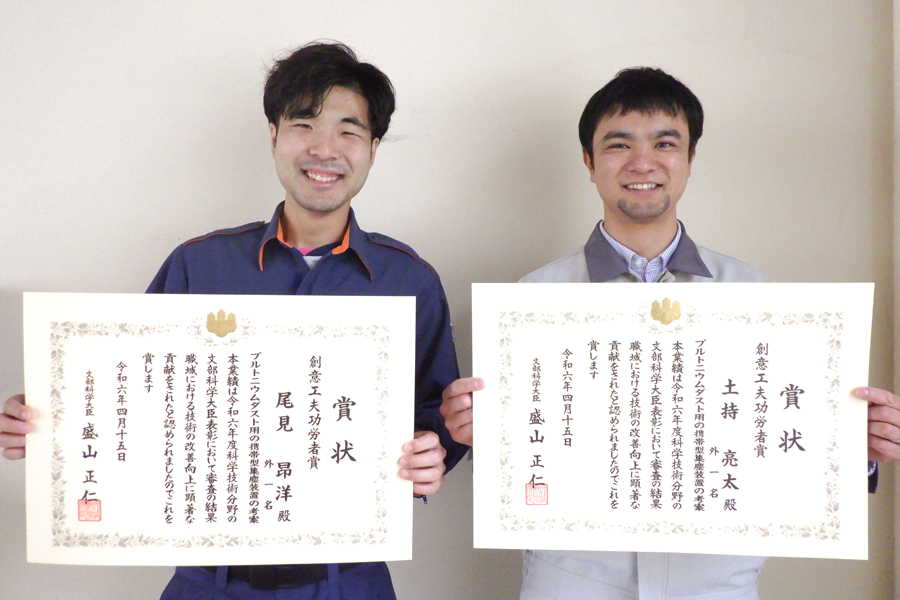 賞状
創意工夫功労者賞
尾見 昂洋 殿
外一名
プルトニウムダスト用の携帯型集塵装置の考案
本業績は令和六年度科学技術分野の
文部科学大臣表彰において審査の結果
職域における技術の改善向上に顕著な
貢献をされたと認められましたのでこれを
賞します
令和六年四月十五日
文部科学大臣 盛山 正仁
賞状
創意工夫功労者賞
土持 亮太 殿
外一名
プルトニウムダスト用の携帯型集塵装置の考案
本業績は令和六年度科学技術分野の
文部科学大臣表彰において審査の結果
職域における技術の改善向上に顕著な
貢献をされたと認められましたのでこれを
賞します
令和六年四月十五日
文部科学大臣 盛山 正仁